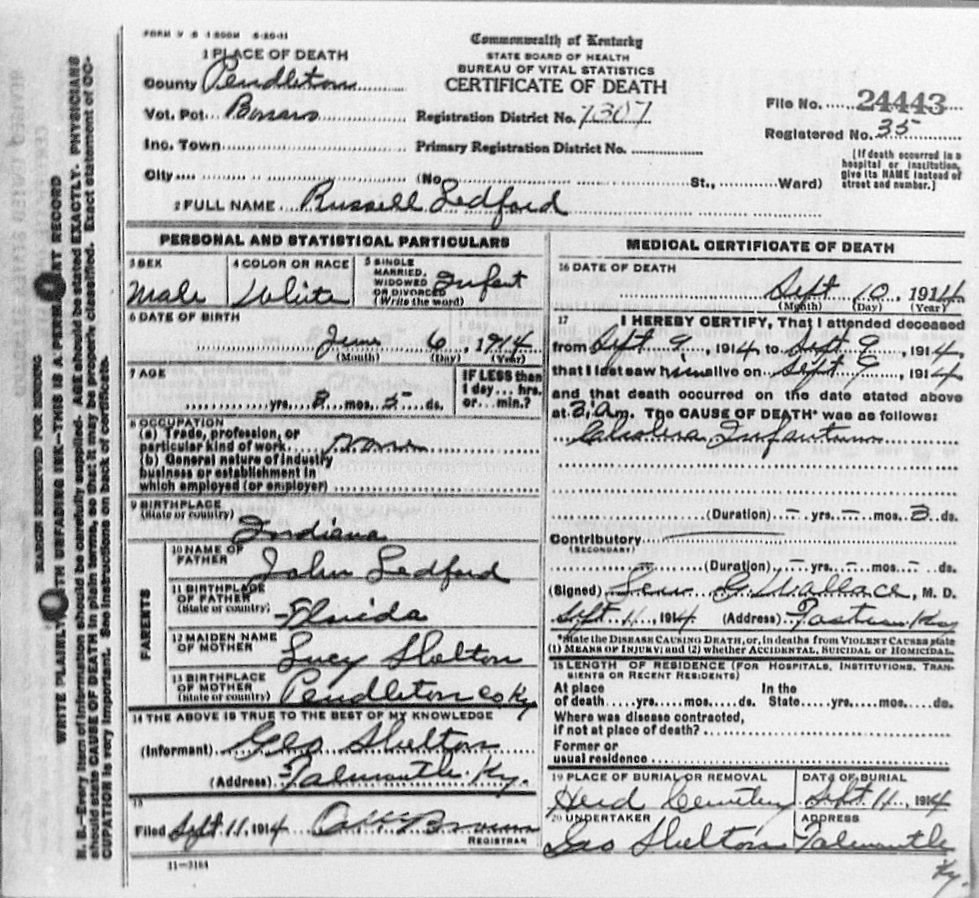 FORM V S 1 500M 5-20-11
Commonwealth of Kentucky
STATE BOARD OF HEALTH
BUREAU OF VITAL STATISTICS
CERTIFICATE OF DEATH
1 PLACE OF DEATH
County Pendleton
Vot. Pct.
Inc. Town
City (No. St., Ward)
Registration District No. 7307
Primary Registration District No.
File No. 24443
Registered No. 35
[If death occurred in a
hospital or institution,
give its NAME instead of
street and number.]
2 FULL NAME Russell Ledford
PERSONAL AND STATISTICAL PARTICULARS
3 SEX
Male
4 COLOR OR RACE
White
5 SINGLE
MARRIED,
WIDOWED
OR DIVORCED
(Write the word)
Infant
6 DATE OF BIRTH
June 6, 1914
(Month) (Day) (Year)
7 AGE
yrs. 3 mos. 5 ds.
IF LESS than
1 day... hrs.
or... min.?
8 OCCUPATION
(a) Trade, profession, or
particular kind of work none
(b) General nature of industry
business or establishment in
which employed (or employer)
9 BIRTHPLACE
(State or country)
Indiana
PARENTS
10 NAME OF
FATHER
John Ledford
11 BIRTHPLACE
OF FATHER
(State or country)
Florida
12 MAIDEN NAME
OF MOTHER
Lucy Shelton
13 BIRTHPLACE
OF MOTHER
(State or country)
Pendleton co Ky
14 THE ABOVE IS TRUE TO THE BEST OF MY KNOWLEDGE
(Informant) Geo Shelton
(Address) Falmouth Ky.
15
Filed Sept 11, 1914 Brown
REGISTRAR
11-3184
MEDICAL CERTIFICATE OF DEATH
16 DATE OF DEATH
Sept 10, 1914
(Month) (Day) (Year)
17 I HEREBY CERTIFY, That I attended deceased
from Sept 9, 1914, to Sept 9, 1914,
that I last saw him alive on Sept 9, 1914
and that death occurred on the date stated above
at 3 a.m. The CAUSE OF DEATH* was as follows:
Cholera Infantum
(Duration) — yrs. — mos. 3 ds.
Contributory
(SECONDARY)
(Duration) — yrs. — mos. — ds.
(Signed) G. Wallace, M. D.
Sept 11, 1914 (Address) Foster Ky
*State the DISEASE CAUSING DEATH, or, in deaths from VIOLENT CAUSES state
(1) MEANS OF INJURY; and (2) whether ACCIDENTAL, SUICIDAL or HOMICIDAL.
18 LENGTH OF RESIDENCE (FOR HOSPITALS, INSTITUTIONS, TRAN-
SIENTS OR RECENT RESIDENTS)
At place In the
of death yrs. mos. ds. State yrs. mos. ds.
Where was disease contracted,
if not at place of death?
Former or
usual residence
19 PLACE OF BURIAL OR REMOVAL
Herd Cemetery
DATE OF BURIAL
Sept 11, 1914
20 UNDERTAKER
Geo Shelton
ADDRESS
Falmouth
Ky.
MARGIN RESERVED FOR BINDING
WRITE PLAINLY WITH UNFADING INK—THIS IS A PERMANENT RECORD
N. B.—Every item of information should be carefully supplied. AGE should be stated EXACTLY. PHYSICIANS
should state CAUSE OF DEATH in plain terms, so that it may be properly classified. Exact statement of OC-
CUPATION is very important. See instructions on back of certificate.